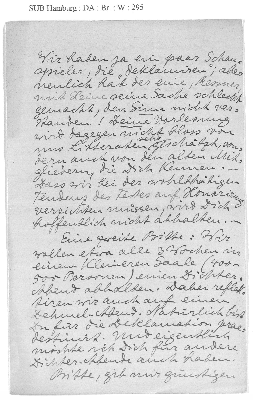 SUB Hamb.eg : DA : Br : W : 295
Wir haben ja ein paar Schau-
spieler, die „deklamiren“, aber
neulich hat das eine,
und seine Sache schlecht
gemacht, den Sinn nicht ver-
standen! Deine Vorlesung
wird dagegen nicht bloss von
uns Litteraten geschätzt, son-
dern auch von den alten Mit-
gliedern, die Dich kennen. —
Dass wir bei der wohlthätigen
Tendenz des Festes auf Honorar
verzichten müssen, wird Dich
hoffentlich nicht abhalten. —
Eine zweite Bitte: Wir
wollen etwa alle 3 Wochen in
einem kleineren Saale (
Personen) einen Dichter-
Abend abhalten. Daher reflek-
tiren wir auch auf einen
Dehmel-Abend. Natürlich bist
Du für die Deklamation prae-
destinirt. Und eigentlich
möchte ich Dich für andere
Dichter-Abende auch haben.
Bitte, gib mir günstigen